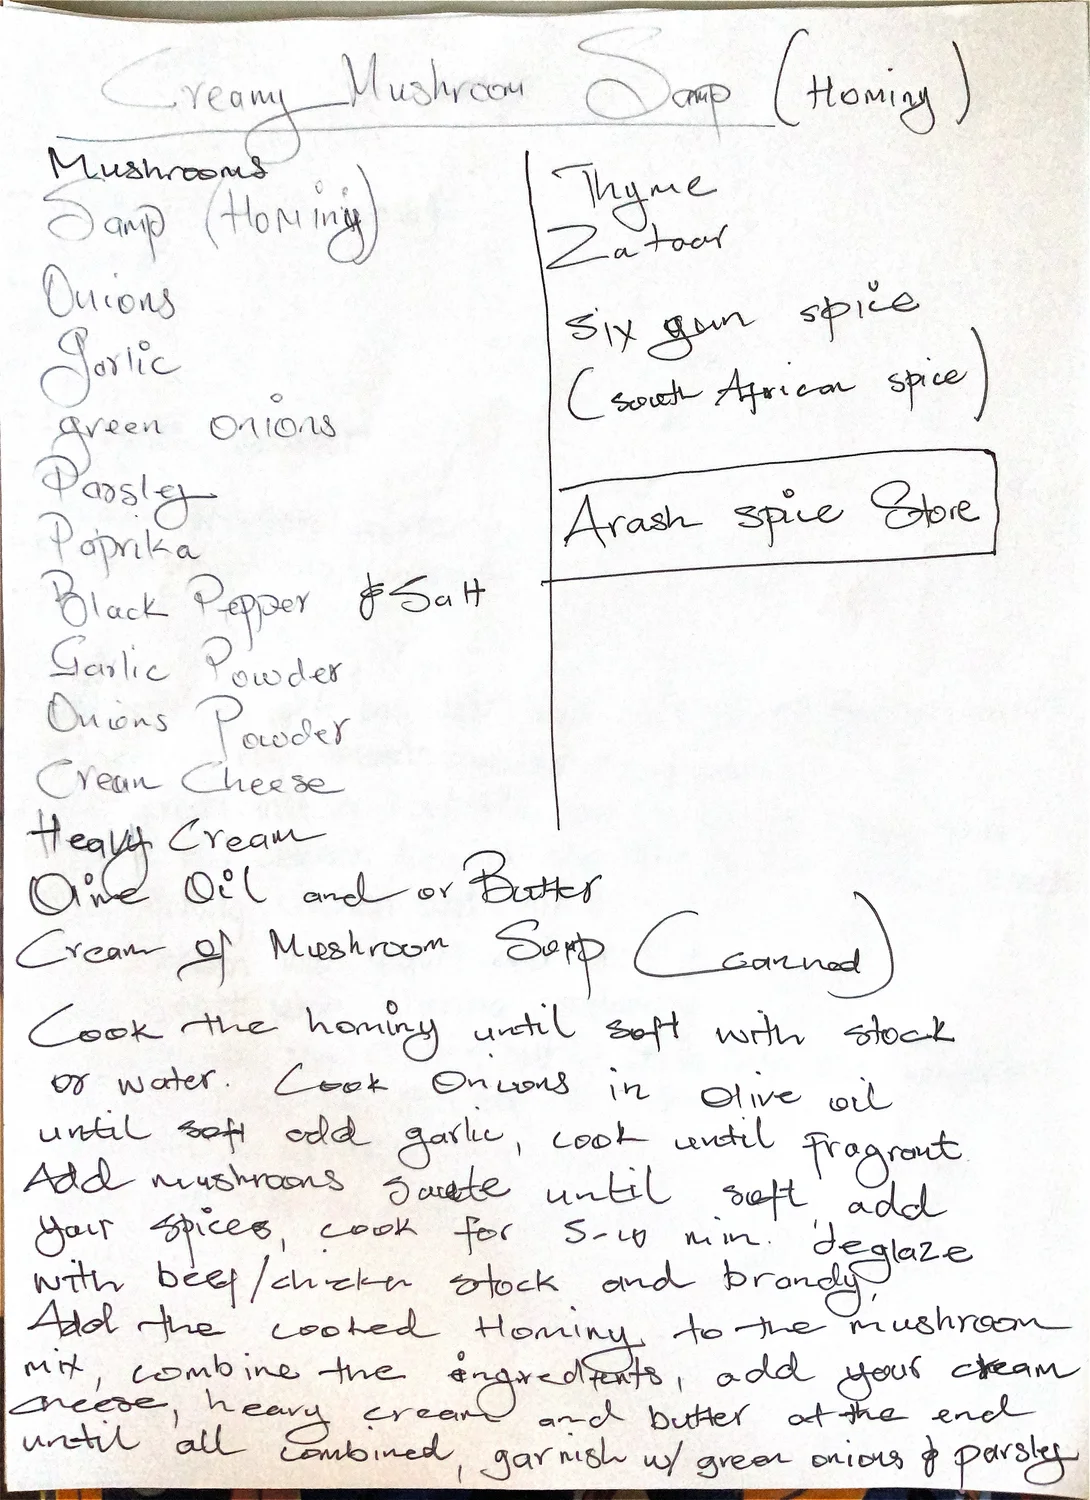 Creamy Mushroom Samp (Hominy)
Mushrooms
Samp (Hominy)
Onions
Garlic
green onions
Parsley
Paprika
Black Pepper & Salt
Garlic Powder
Onions Powder
Cream Cheese
Heavy Cream
Olive Oil and or Butter
Cream of Mushroom Soup (canned)
Thyme
Zataar
Six gun spice
(south African spice)
Arash spice Store
Cook the hominy until soft with stock
or water. Cook Onions in Olive oil
until soft add garlic, cook until fragrant.
Add mushrooms saute until soft, add
your spices, cook for 5-10 min. deglaze
with beef/chicken stock and brandy.
Add the cooked Hominy to the mushroom
mix, combine the ingredients, add your cream
cheese, heavy cream and butter at the end
until all combined, garnish w/ green onions & parsley